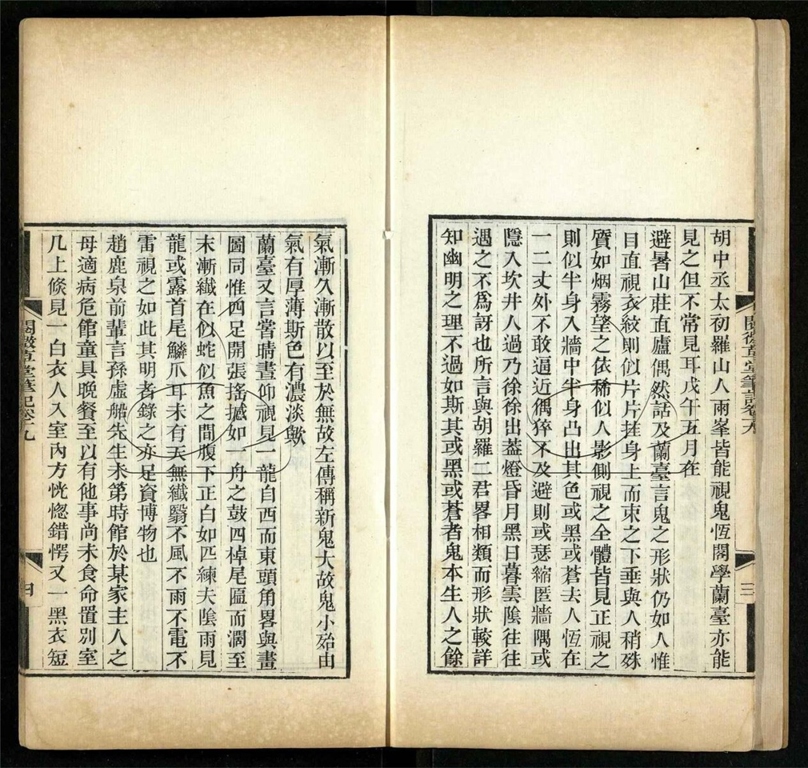 胡中丞太初羅山人兩峯皆能視鬼恆閣學蘭臺亦能
見之但不常見耳戊午五月在
避暑山莊直廬偶然話及蘭臺言鬼之形狀仍如人惟
目直視衣紋則似片片挂身上而束之下垂與人稍殊
質如烟霧望之依稀似人影側視之全體皆見正視之
則似半身入牆中半身凸出其色或黑或蒼去人恆在
一二丈外不敢逼近偶猝不及避則或瑟縮匿牆隅或
隱入坎井人過乃徐徐出葢燈昏月黑日暮雲陰往往
遇之不爲訝也所言與胡羅二君畧相類而形狀較詳
知幽明之理不過如斯其或黑或蒼者鬼本生人之餘
閱微草堂筆記卷十九
三
氣漸久漸散以至於無故左傳稱新鬼大故鬼小殆由
氣有厚薄斯色有濃淡歟
蘭臺又言嘗晴晝仰視見一龍自西而東頭角畧與畫
圖同惟四足開張搖撼如一舟之鼓四棹尾匾而濶至
末漸纖在似蛇似魚之間腹下正白如匹練夫陰雨見
龍或露首尾鱗爪耳未有天無纖翳不風不雨不電不
雷視之如此其明者錄之亦足資博物也
趙鹿泉前輩言孫虛船先生未第時館於某家主人之
母適病危館童具晚餐至以有他事尚未食命置別室
几上倐見一白衣人入室內方恍惚錯愕又一黑衣短
閱微草堂筆記卷十九